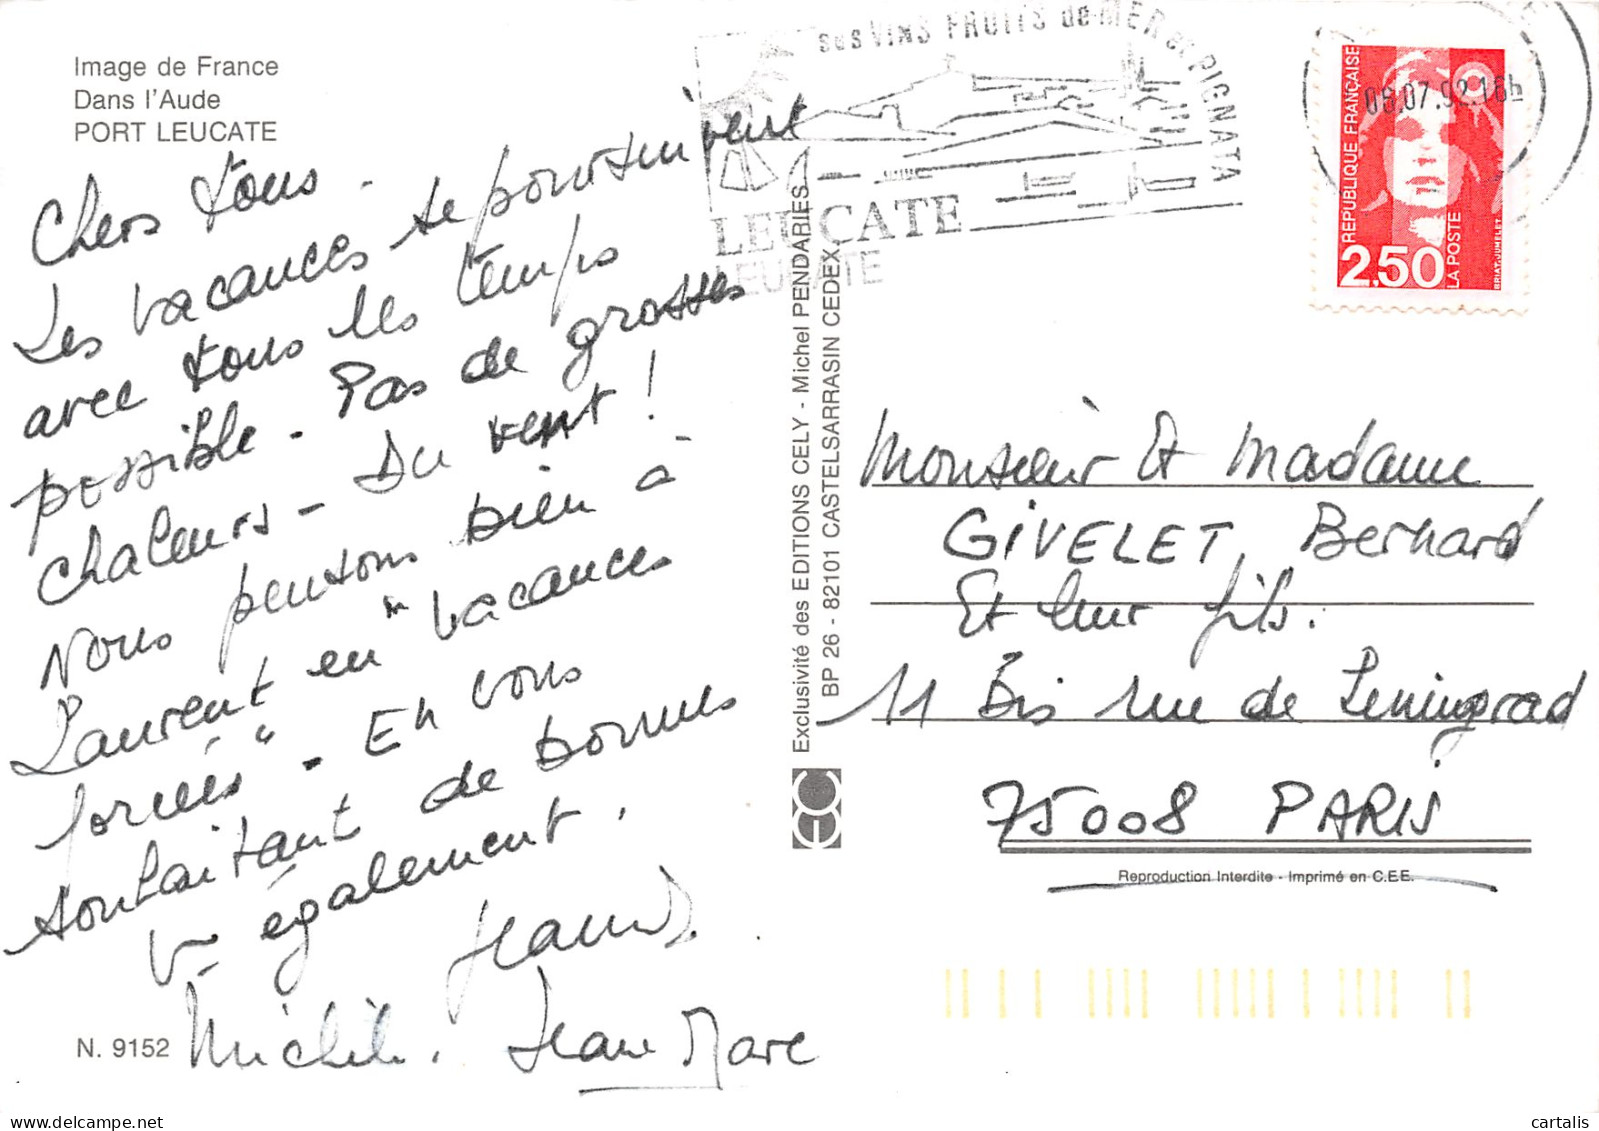 Image de France
Dans l'Aude
PORT LEUCATE
Chers tous.
Les vacances se poursuivent
avec tous les temps
possible. Pas de grosses
chaleurs - Du vent !
Nous pensons bien à
Laurent en "vacances
forcées". En vous
souhaitant de bonnes
V- également.
Michèle. Jean Marc
N. 9152
Exclusivité des EDITIONS CELY - Michel PENDARIES
BP 26 - 82101 CASTELSARRASIN CEDEX
ses VINS FRUITS de MER et PIGNATA
LEUCATE
LEUCATE
08.07.92.16h
REPUBLIQUE FRANÇAISE
2,50
LA POSTE
BRIAT-JUMELET
Monsieur et Madame
GIVELET, Bernard
Et leur fils.
11 Bis rue de Leningrad
75008 PARIS
Reproduction Interdite - Imprimé en C.E.E.
cartalis